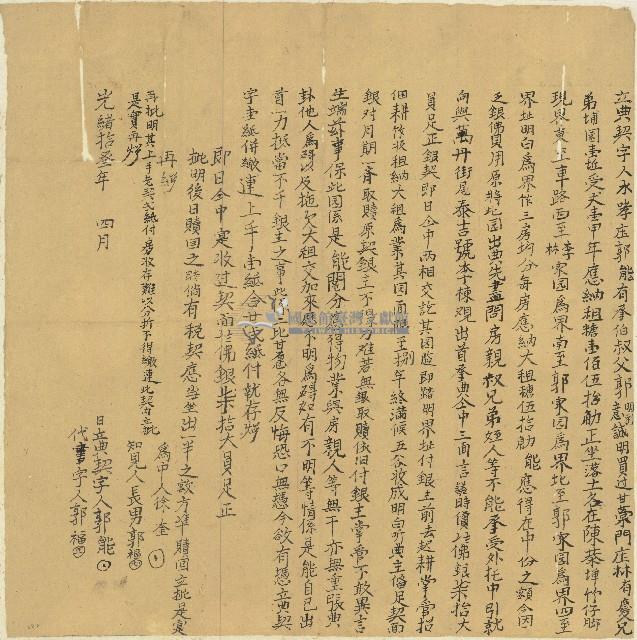 立典契字人水哮庄郭能有承伯叔父郭意誠明買過廿蔡門庄林有慶兄
弟埔園壹坵受天壹甲年應納租糖壹佰伍拾觔正坐落土名在陳蔡坤竹仔脚
現與東至車路西至李林家園為界南至郭家園為界北至郭家園為界四至
界址明白為界作三房均分每房應納大租糖伍拾觔能應得在中份之額今因
乏銀費用原將地園出典先盡問房親叔兄弟姪人等不能承受外托中引就
向與萬丹街尾泰吉號李棟觀出首承典仝中三面言議時價佛銀柒拾大
員足正銀契即日仝中兩相交訖其園隨即踏明界址付銀主前去起耕掌管招
佃耕作收租納大租為業其園面限至捌年終滿候五谷收成明白听典主備足契面
銀對月期一齊取贖原契銀主不得刁难若無銀取贖依旧付銀主掌管不敢異言
生端茲事保此園係是能鬮分應得物業與房親人等無干亦無重張典
卦他人為碍以及拖欠大租交加來歷不明為碍如有不明等情係是能自已出
首一力抵當不干銀主之事此係二比甘愿各無反悔恐口無憑今欲有憑立典契
字壹紙併繳連上手壹紙合共貳紙付執存炤
即日仝中寔收过契面佛銀柒拾大員足正
批明後日贖回之時倘有税契應當坐出一半之款方准贖回立批是寔
再炤
再批明其上手老契弍紙付房收存难以分拆不得繳連此契內立批
是實再炤
為中人徐奎
知見人長男郭福
光緒拾叁年 四月
日立典契字人郭能
代書字人郭福
國史館臺灣文獻館
TAIWAN HISTORICA